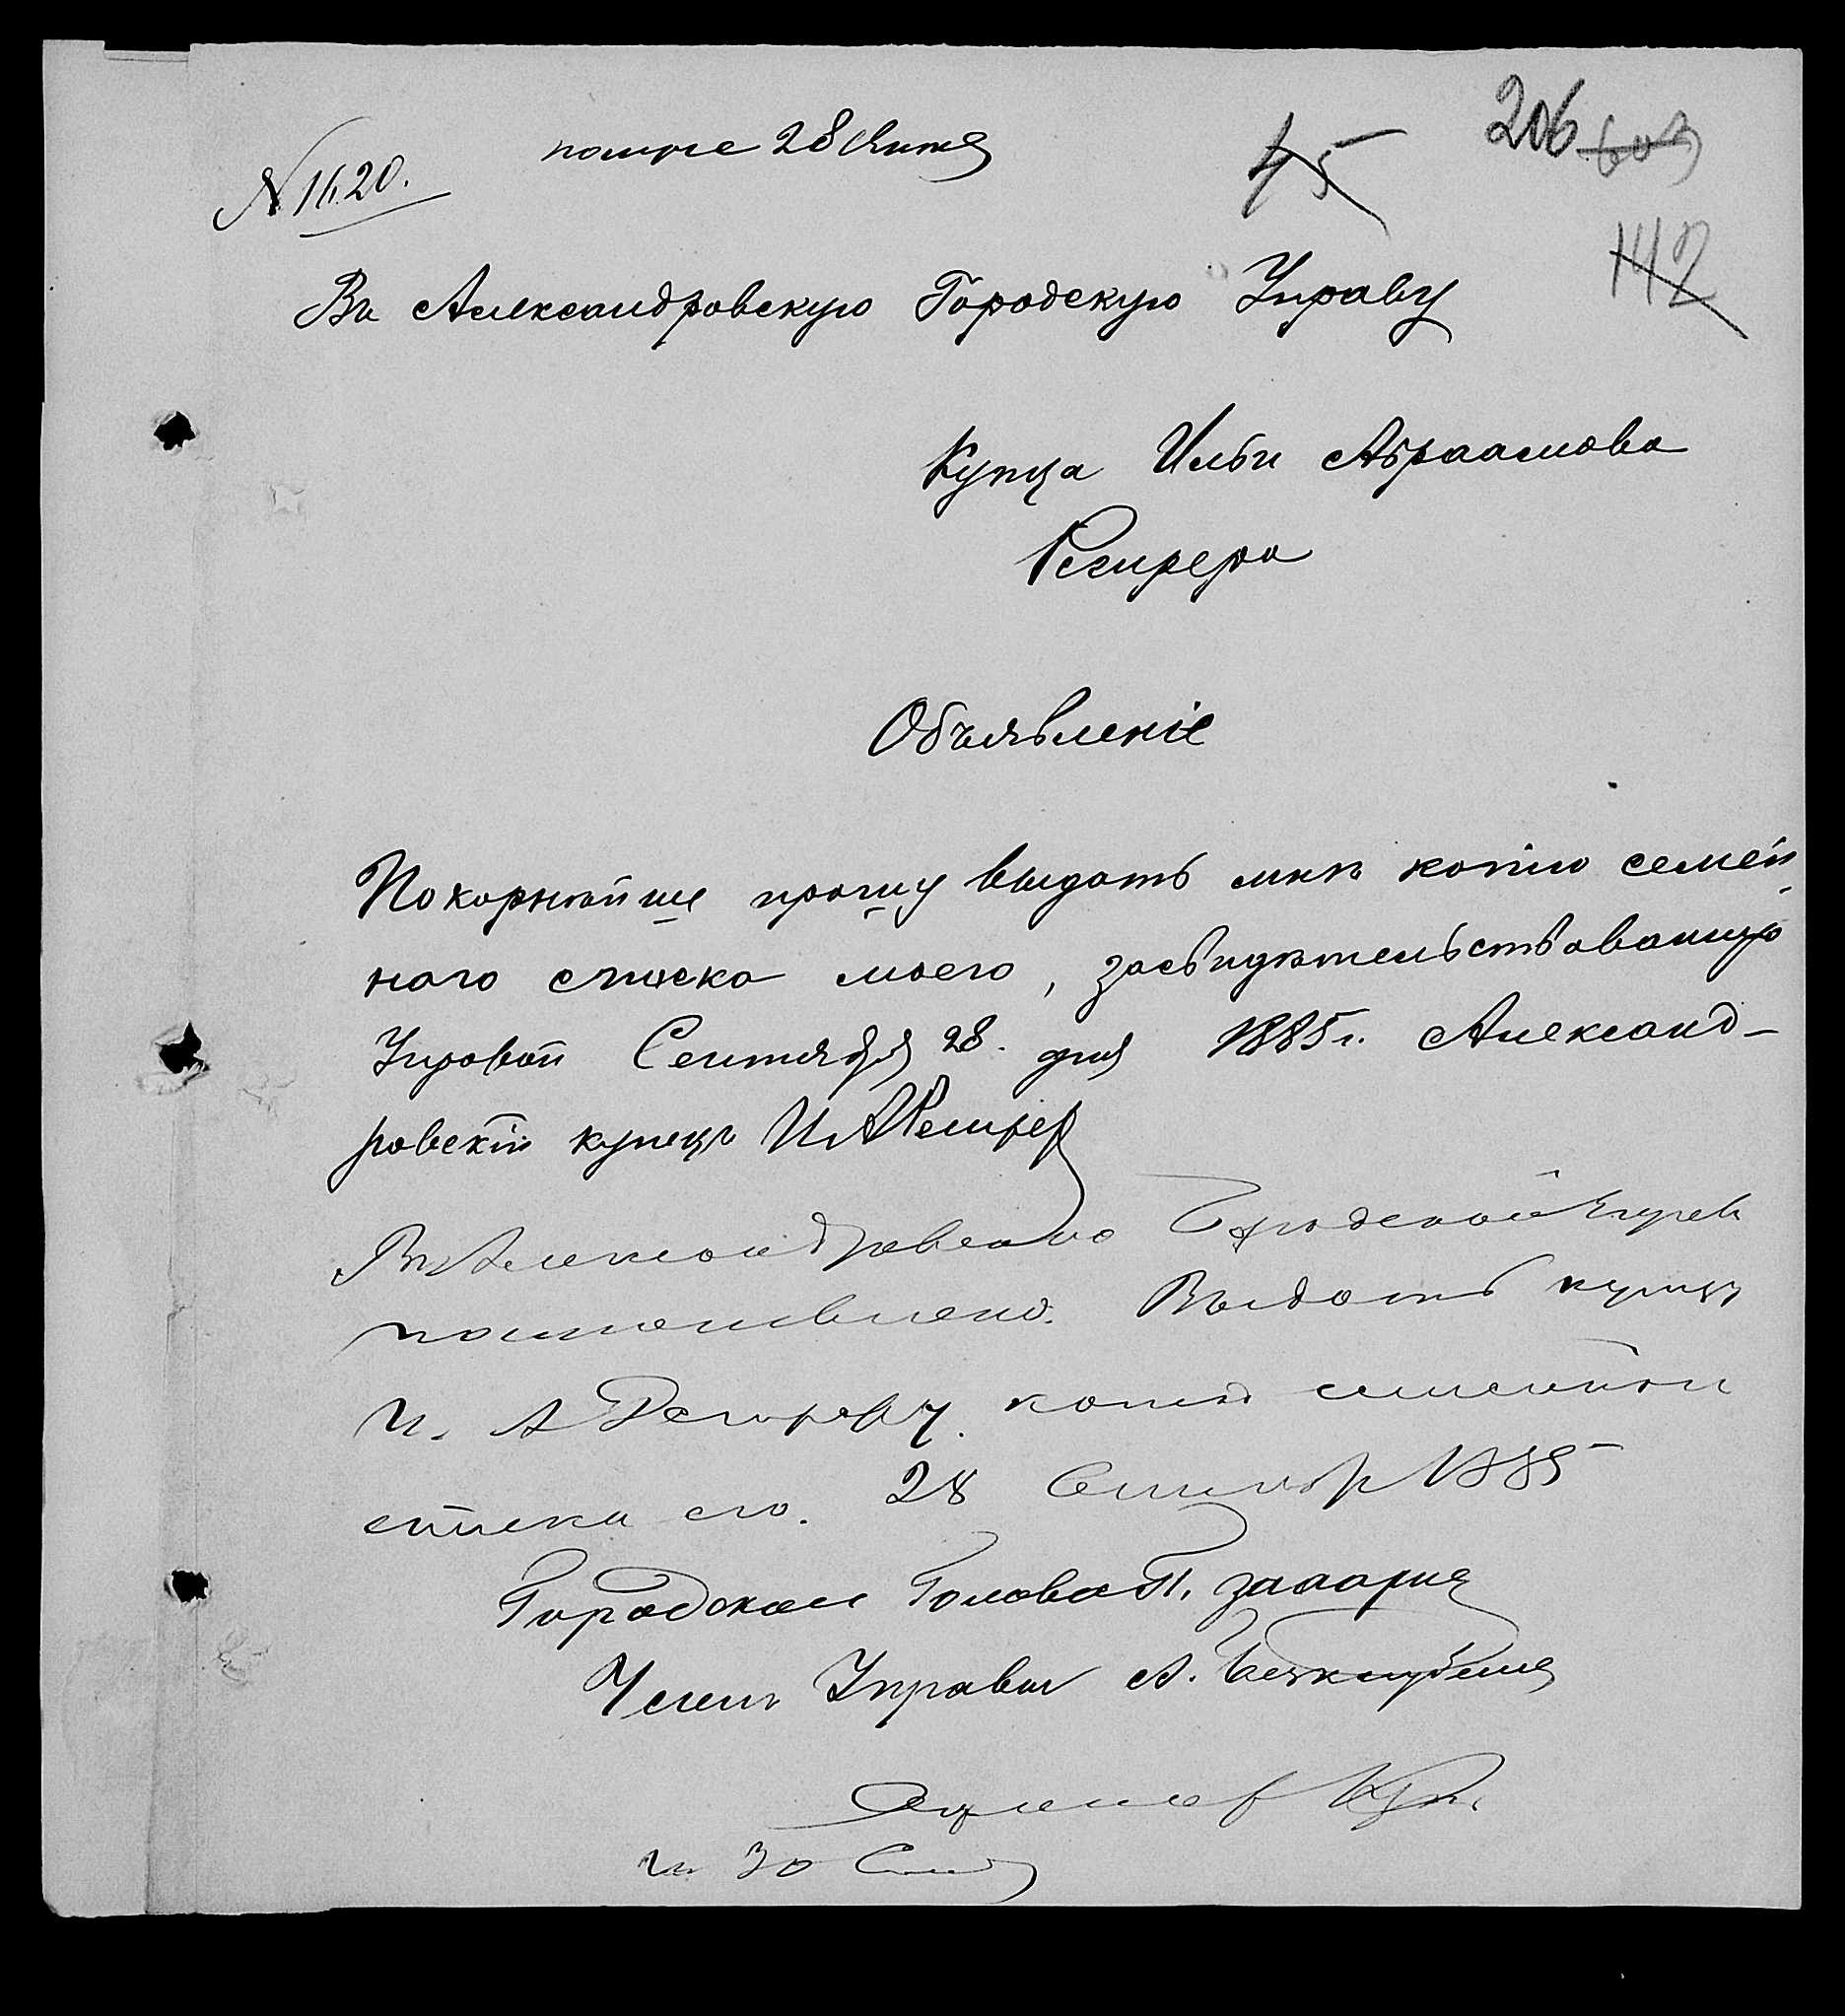 206
45
№ 1620.
142
Въ Александровскую Городскую Управу
Купца Ильи Абраамова
Объявленіе
Покорнѣйше прошу выдать мнѣ копію семей
наго списка моего, засвидѣтельствованную
Управой Сентября 28. дня 1885 г. Александ-
ровскій купецъ И А
Въ Александровской Городской Управѣ
постановлено. Выдать купцу
И. А копію семейнаго
списка его. 28 Сентябр 1885
Городской Голова П. Захарин
Членъ Управы А.
30 Сент